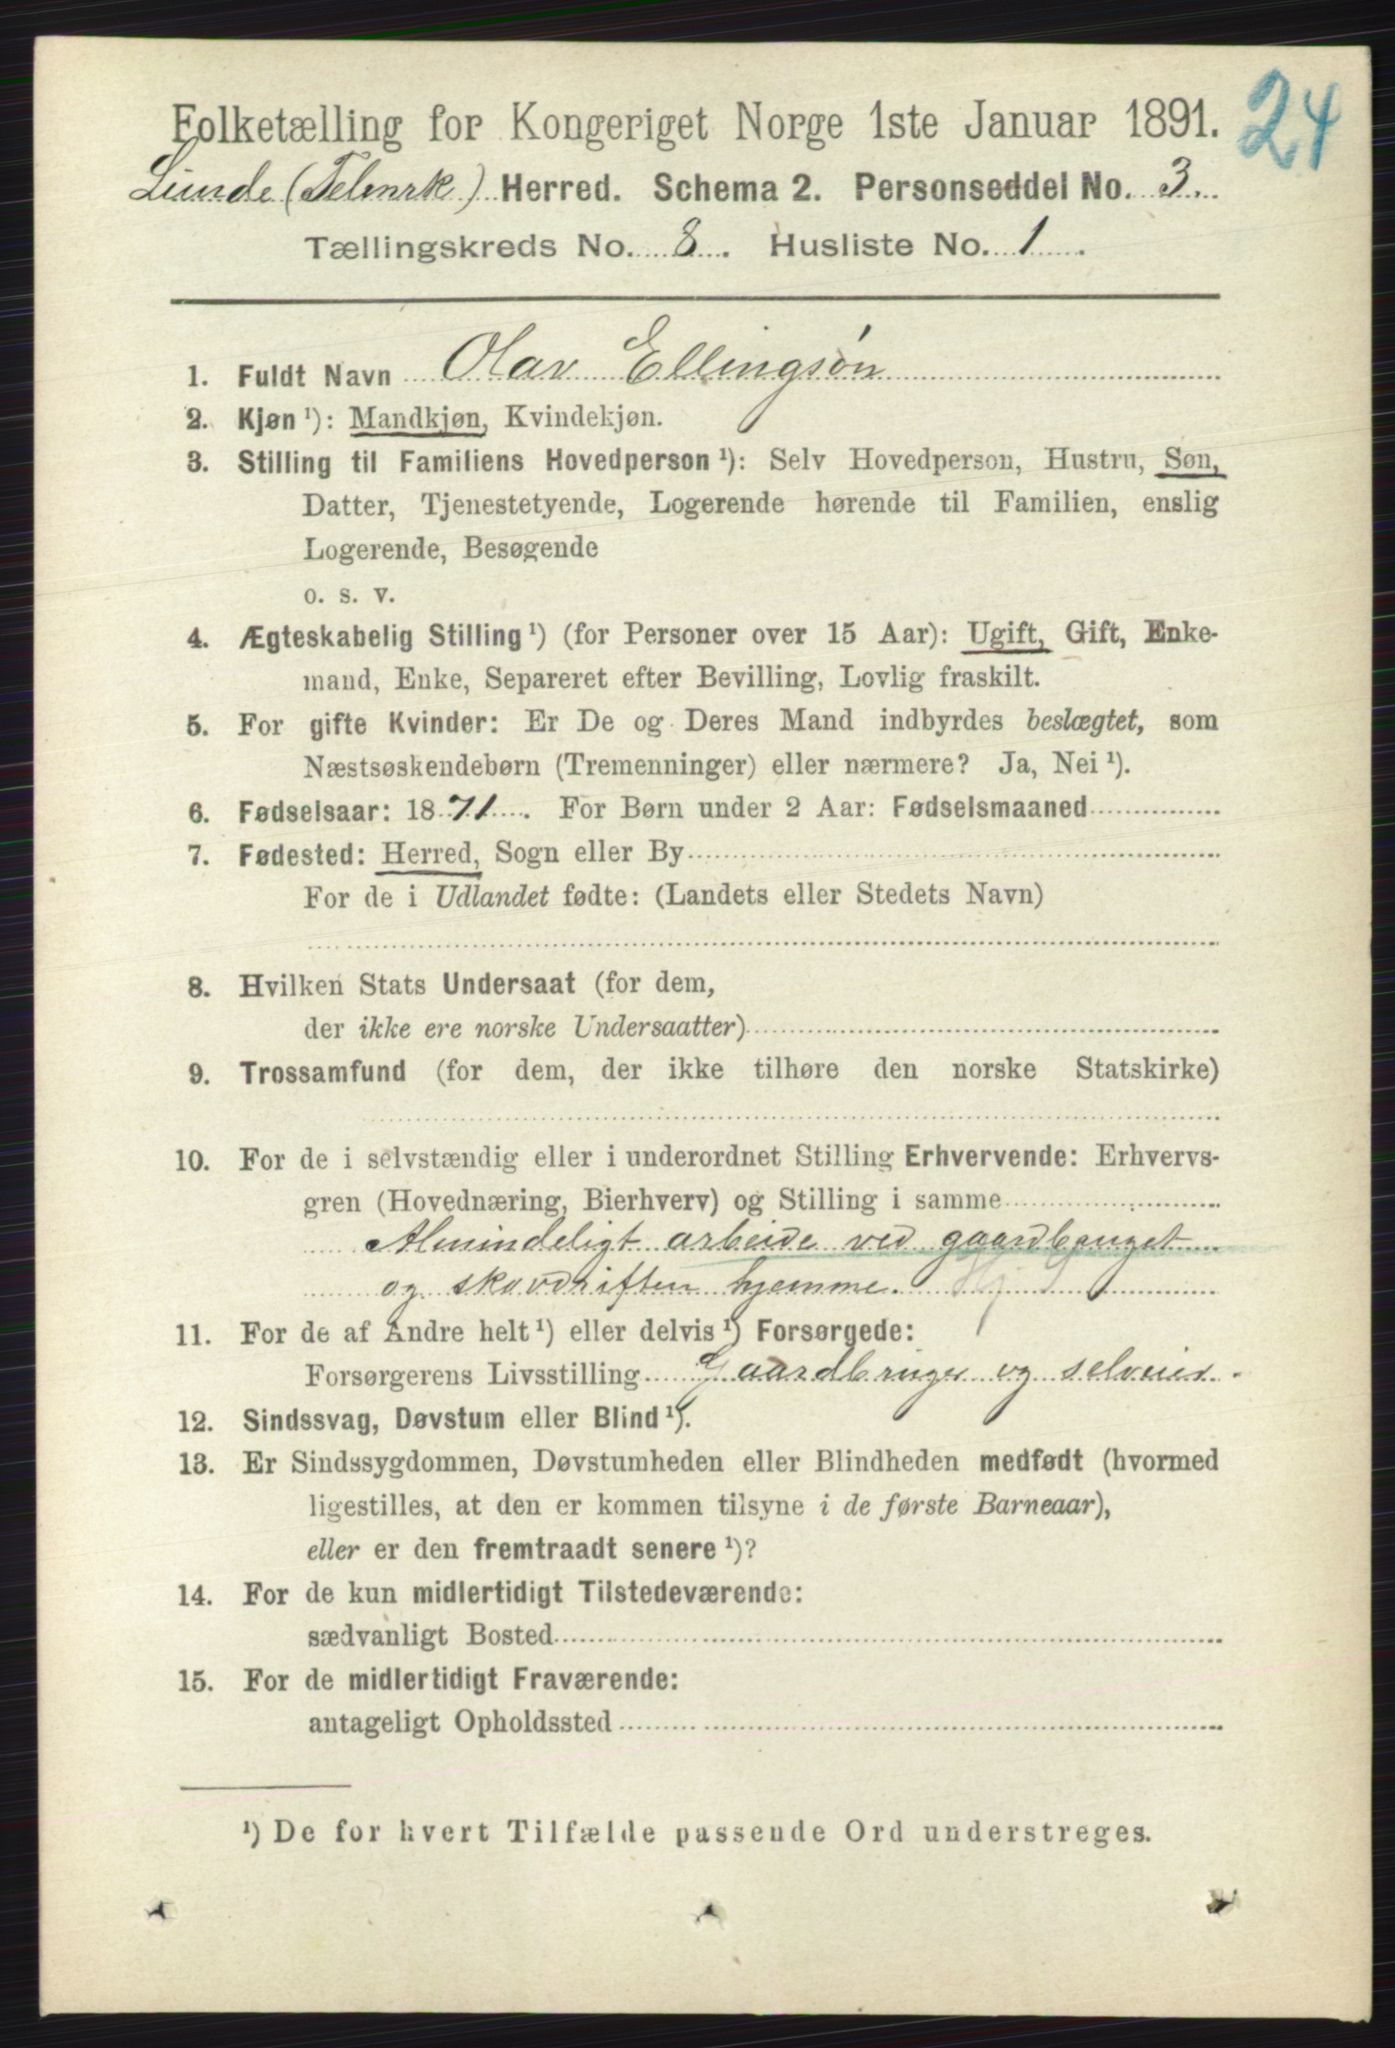 24
Folketælling for Kongeriget Norge 1ste Januar 1891.
Lunde (Telmrk) Herred. Schema 2. Personseddel No. 3.
Tællingskreds No. 8. Husliste No. 1.
1. Fuldt Navn Olav Ellingsøn
2. Kjøn ¹): Mandkjøn, Kvindekjøn.
3. Stilling til Familiens Hovedperson ¹): Selv Hovedperson, Hustru, Søn,
Datter, Tjenestetyende, Logerende hørende til Familien, enslig
Logerende, Besøgende
o. s. v.
4. Ægteskabelig Stilling ¹) (for Personer over 15 Aar): Ugift, Gift, Enke-
mand, Enke, Separeret efter Bevilling, Lovlig fraskilt.
5. For gifte Kvinder: Er De og Deres Mand indbyrdes beslægtet, som
Næstsøskendebørn (Tremenninger) eller nærmere? Ja, Nei ¹).
6. Fødselsaar: 1871. For Børn under 2 Aar: Fødselsmaaned
7. Fødested: Herred, Sogn eller By
For de i Udlandet fødte: (Landets eller Stedets Navn)
8. Hvilken Stats Undersaat (for dem,
der ikke ere norske Undersaatter)
9. Trossamfund (for dem, der ikke tilhøre den norske Statskirke)
10. For de i selvstændig eller i underordnet Stilling Erhvervende: Erhvervs-
gren (Hovednæring, Bierhverv) og Stilling i samme
Almindeligt arbeide ved gaardbruget
og skovdriften hjemme.
11. For de af Andre helt ¹) eller delvis ¹) Forsørgede:
Forsørgerens Livsstilling Gaardbruger og selveier.
12. Sindssvag, Døvstum eller Blind ¹).
13. Er Sindssygdommen, Døvstumheden eller Blindheden medfødt (hvormed
ligestilles, at den er kommen tilsyne i de første Barneaar),
eller er den fremtraadt senere ¹)?
14. For de kun midlertidigt Tilstedeværende:
sædvanligt Bosted
15. For de midlertidigt Fraværende:
antageligt Opholdssted
¹) De for hvert Tilfælde passende Ord understreges.